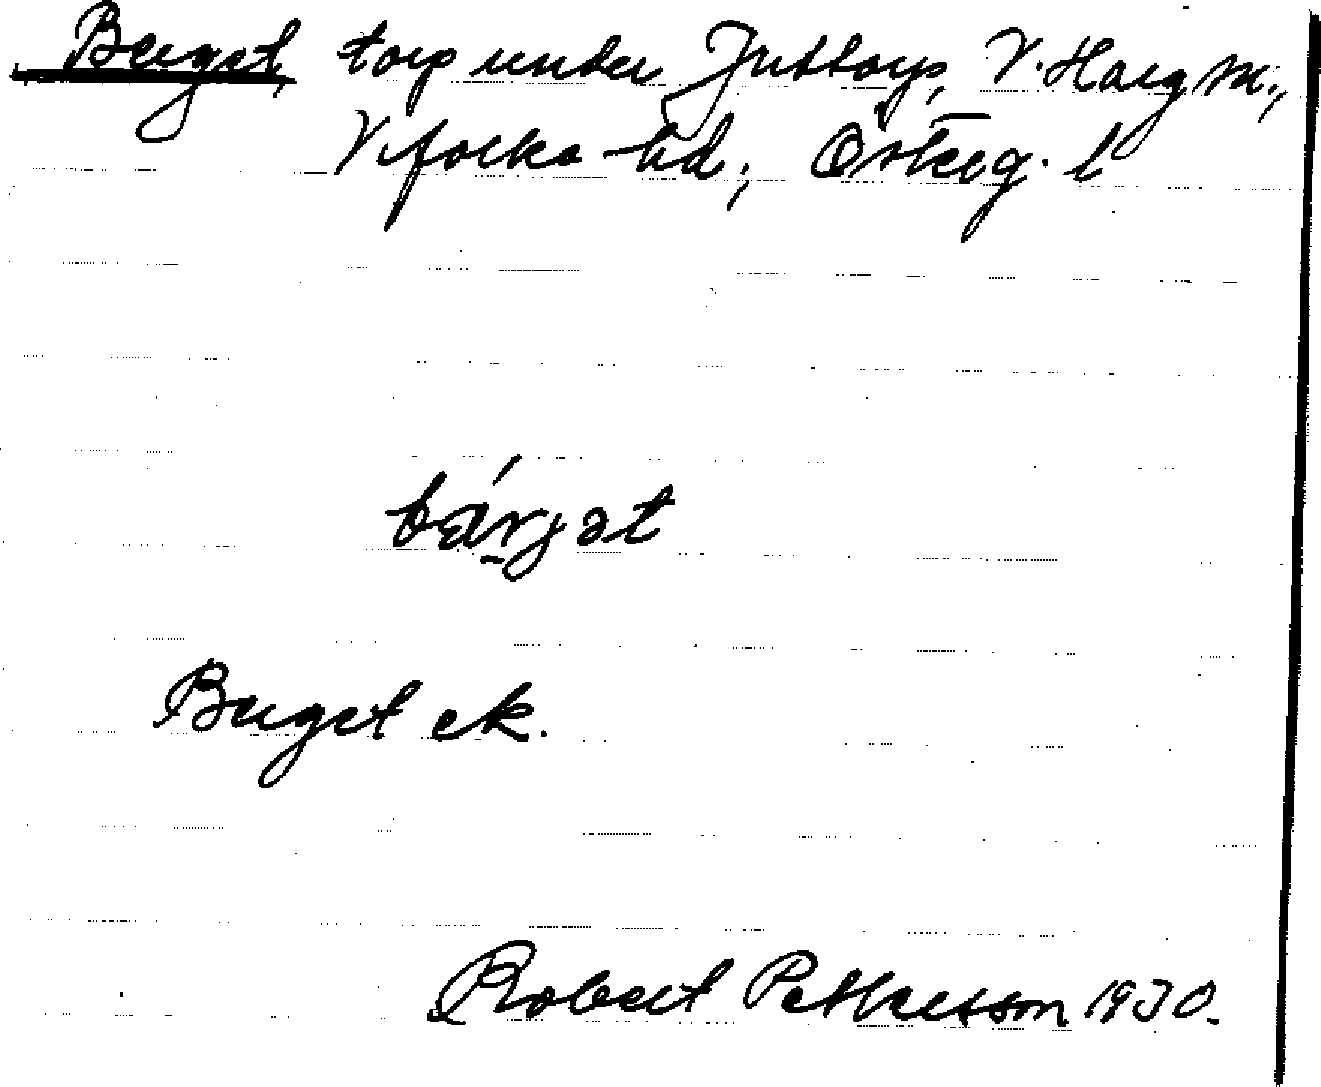 Berget torp under Juttorp, V. Harg sn.,
Vifolka hd, Östeog. l
bärjət
Berget ek.
Robert Pettersson 1930.